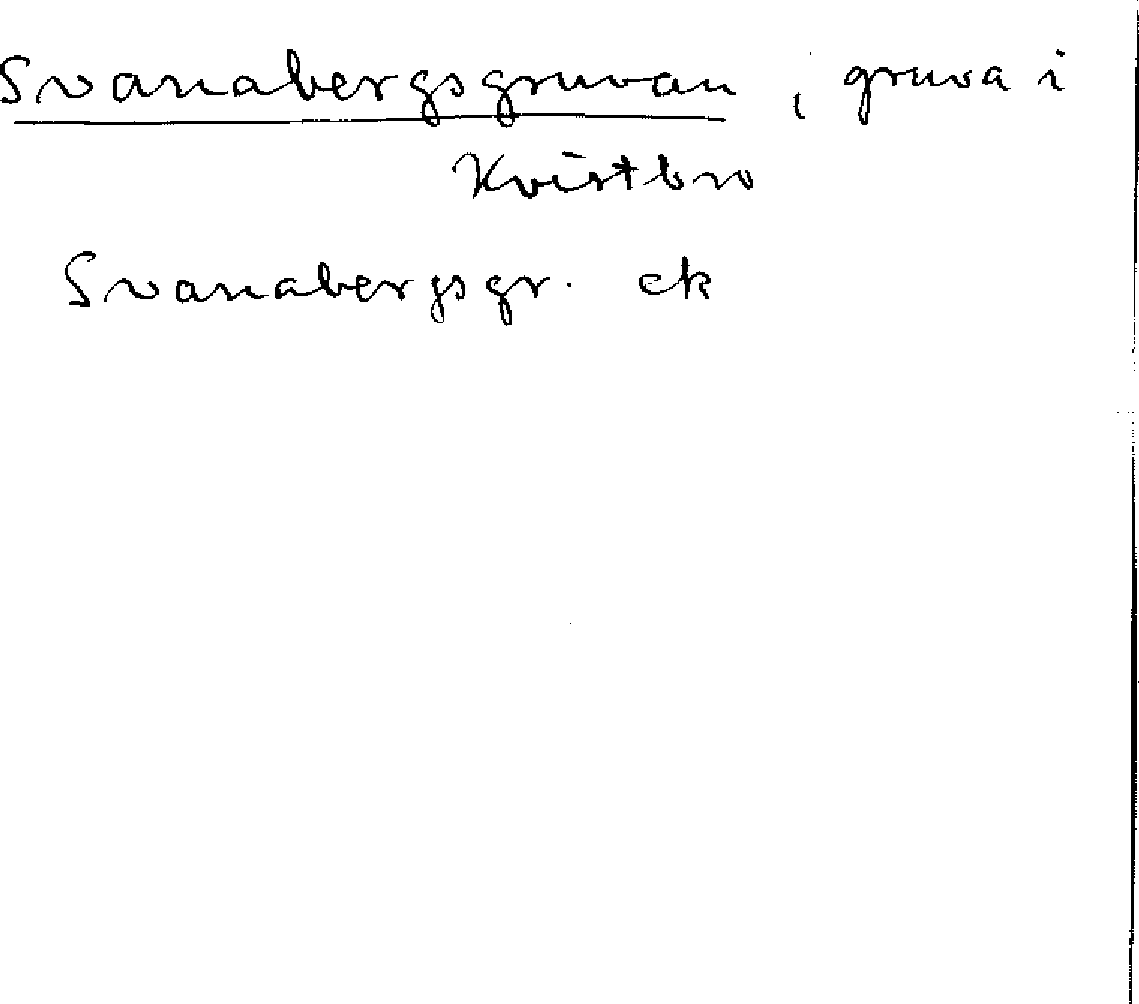 Svanabergsgruvan, gruva i
Kvistbro
Svanabergsgr. ek